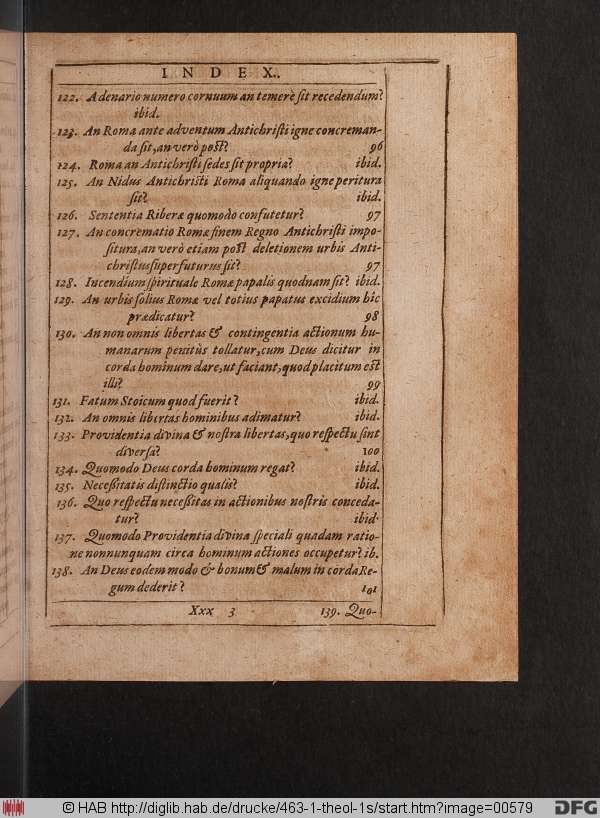 INDEX.
122. A denario numero cornuum an temerè sit recedendum?
ibid.
123. An Roma ante adventum Antichristi igne concreman-
da sit, an verò post? 96
124. Roma an Antichristi sedes sit propria? ibid.
125. An Nidus Antichristi Roma aliquando igne peritura
sit? ibid.
126. Sententia Riberæ quomodo confutetur? 97
127. An concrematio Romæ finem Regno Antichristi impo-
situra, an verò etiam post deletionem urbis Anti-
christus superfuturus sit? 97
128. Incendium spirituale Romæ papalis quodnam sit? ibid.
129. An urbis solius Romæ vel totius papatus excidium hîc
prædicatur? 98
130. An non omnis libertas & contingentia actionum hu-
manarum penitùs tollatur, cum Deus dicitur in
corda hominum dare, ut faciant, quod placitum est
illi? 99
131. Fatum Stoicum quod fuerit? ibid.
132. An omnis libertas hominibus adimatur? ibid.
133. Providentia divina & nostra libertas, quo respectu sint
diversa? 100
134. Quomodo Deus corda hominum regat? ibid.
135. Necessitatis distinctio qualis? ibid.
136. Quo respectu necessitas in actionibus nostris conceda-
tur? ibid.
137. Quomodo Providentia divina speciali quadam ratio-
ne nonnunquam circa hominum actiones occupetur? ib.
138. An Deus eodem modo & bonum & malum in corda Re-
gum dederit? 101
Xxx 3 139. Quo-
© HAB http://diglib.hab.de/drucke/463-1-theol-1s/start.htm?image=00579
DFG